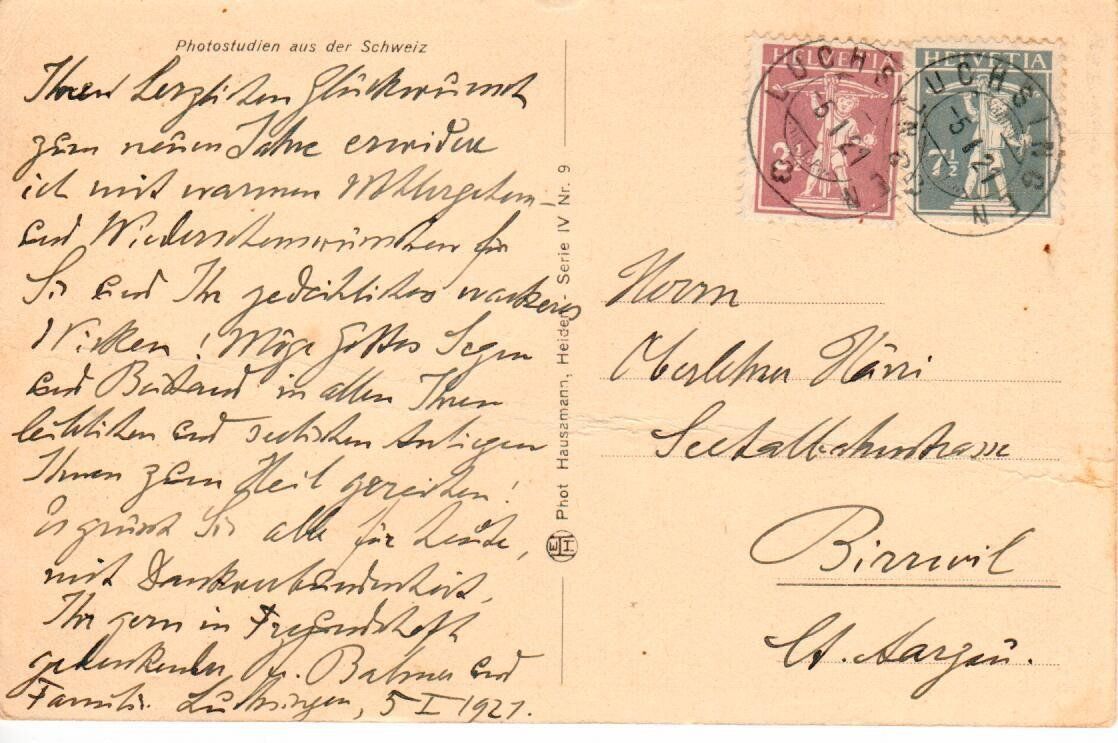 Photostudien aus der Schweiz
Ihren herzlichen Glückwunsch
zum neuen Jahre erwidere
ich mit warmen Wohlergehen-
und Wiedersehenswünschen für
Sie und Ihr gedeihliches wackeres
Wirken! Möge Gottes Segen
und Beistand in allen Ihren
leiblichen und seelischen Anliegen
Ihnen zum Heil gereichen!
Es grüsst Sie alle für heute,
mit Dankverbundenheit,
Ihr gern in Freundschaft
gedenkender Balmer und
Familie. Luchsingen, 5 I 1921.
Phot Hausamann, Heiden - Serie IV Nr. 9
EH
HELVETIA
2½
HELVETIA
7½
LUCHSINGEN
-5.I.21
LUCHSINGEN
-5.I.21
Herrn
Oberlehrer Härri
Seetalbahnstrasse
Birrwil
Ct. Aargau.